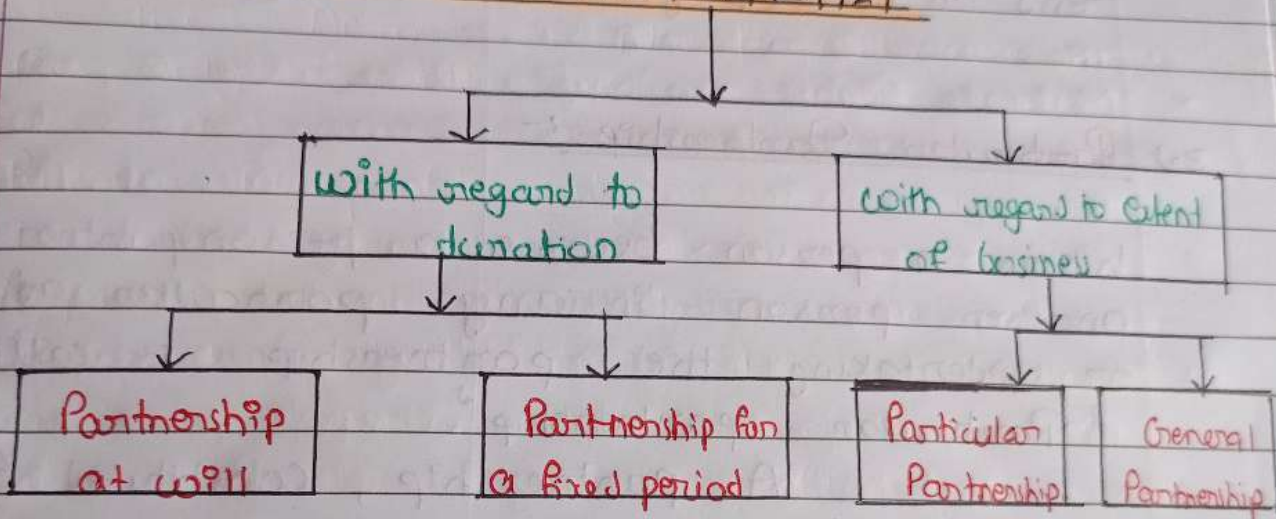 with regard to
duration
with regard to Extent
of business
Partnership
at will
Partnership for
a fixed period
Particular
Partnership
General
Partnership